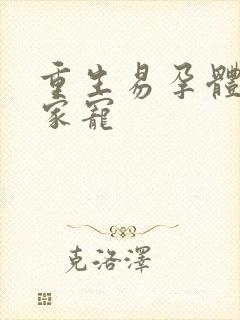 重生易孕體
家寵
克洛澤